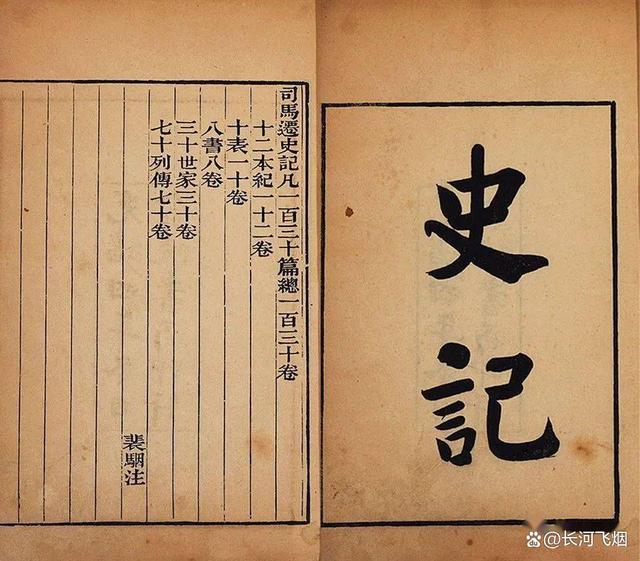 史記
司馬遷史記凡一百三十篇總一百三十卷
十二本紀一十二卷
十表一十卷
八書八卷
三十世家三十卷
七十列傳七十卷
裴駰注
长河飞烟